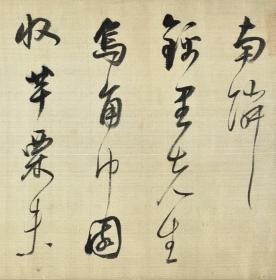 南鄰
錦里先生
烏角巾園
收芋栗未